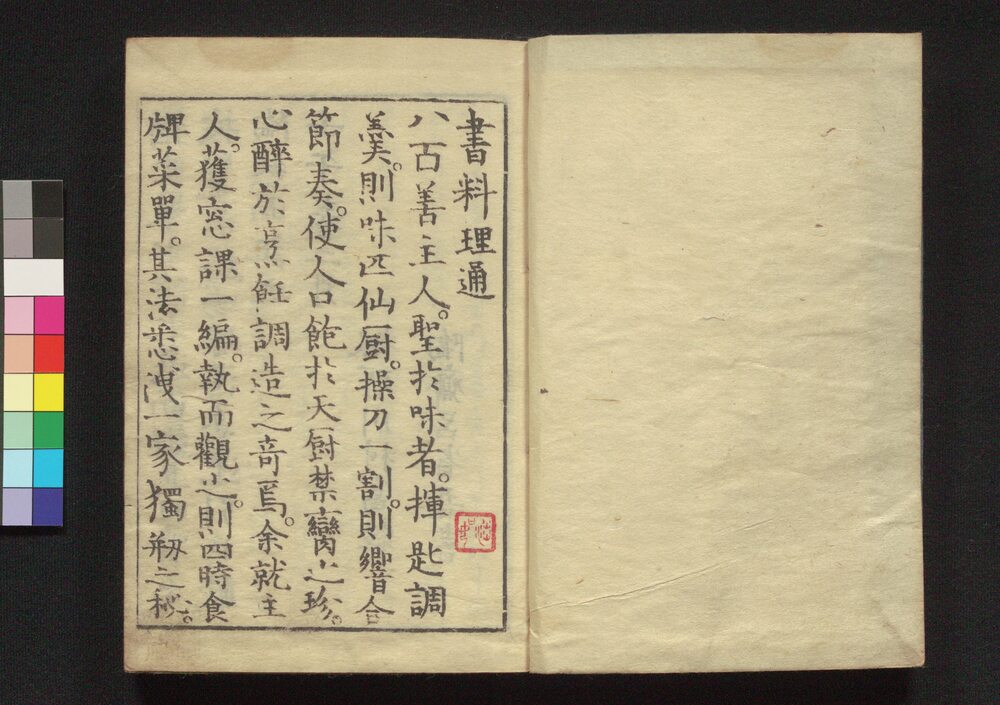 書料理通
八百善主人。聖於味者。揮匙調
羹。則味匹仙厨。操刀一割。則響合
節奏。使人口飽於天厨禁臠之珍。
心醉於烹飪調造之奇焉。余就主
人。獲窓課一編。執而觀之。則四時食
牌菜單。其法悉洩一家獨刱之秘。